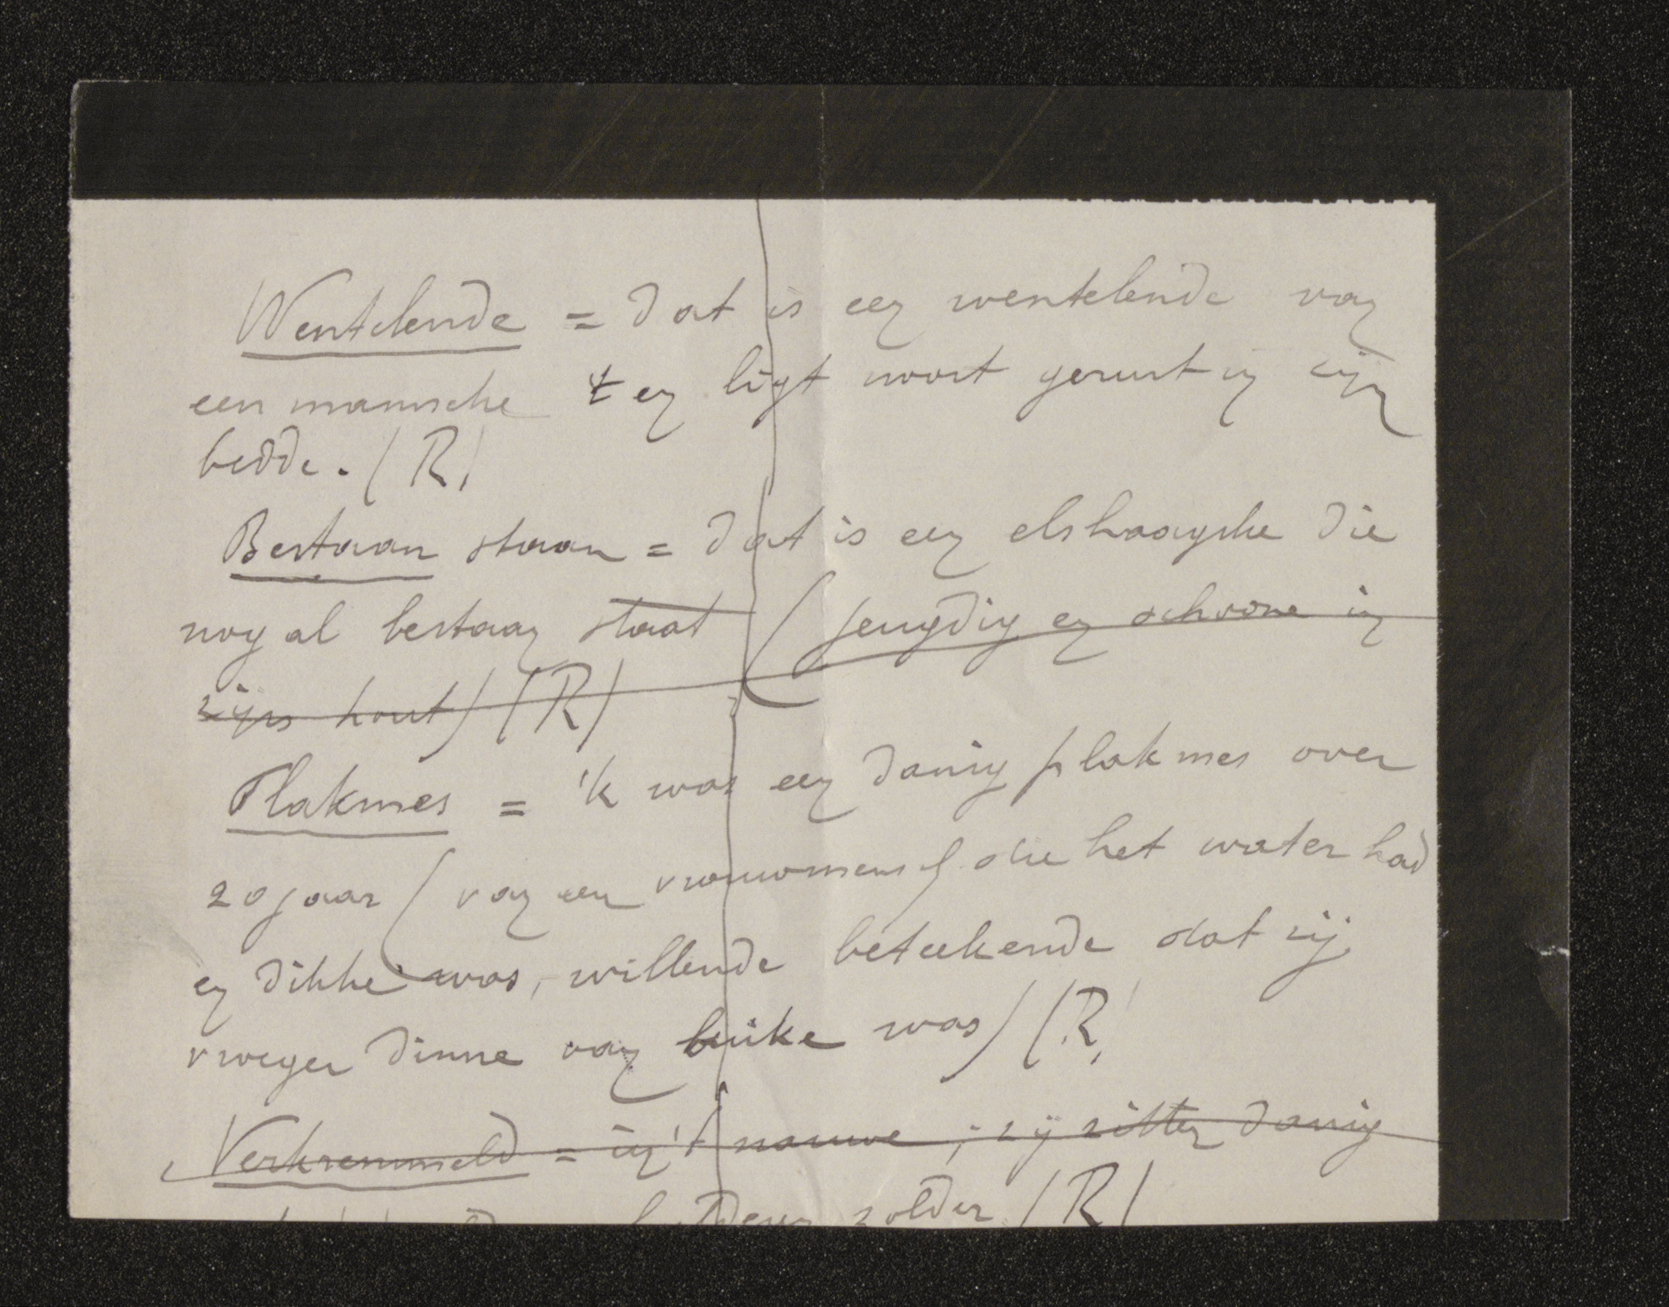 Wentelende = dat is een wentelende van
een mannsche 't en ligt nooit gerust in zijn
bedde. (R)
Bestaan staan = dat is een elshaagske die
nog al bestaan staat (jeugdig en schoone in
zijns hout) (R)
Plakmes = 'k was een danig plakmes over
20 jaar (van een vrouwmensch die het water had
en dikke was, willende beteekende dat zij
vroeger dinne van buike was) (R)
Verkremmeld = in 't nauwe; zij zitten danig
zolder (R)